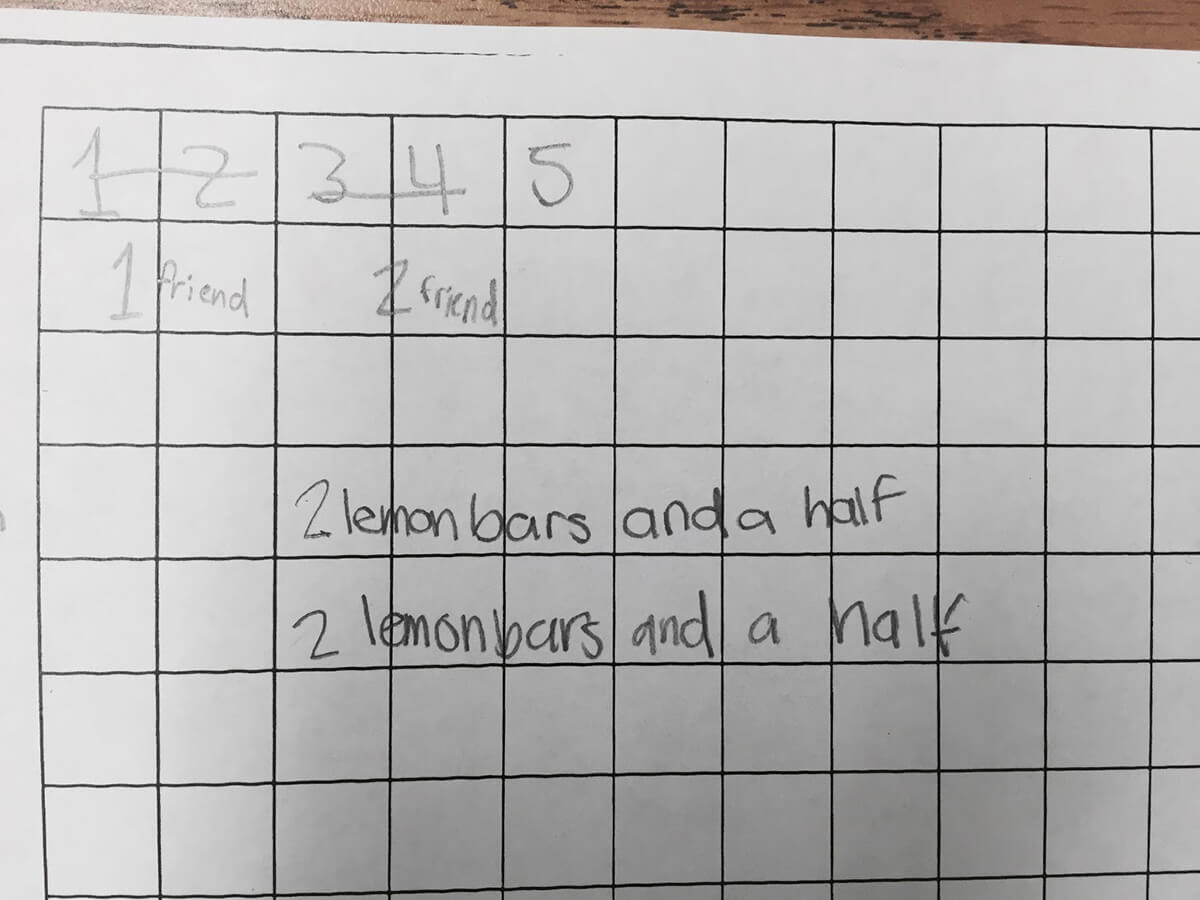 1 2 3 4 5
1 friend 2 friend
2 lemon bars and a half
2 lemon bars and a half